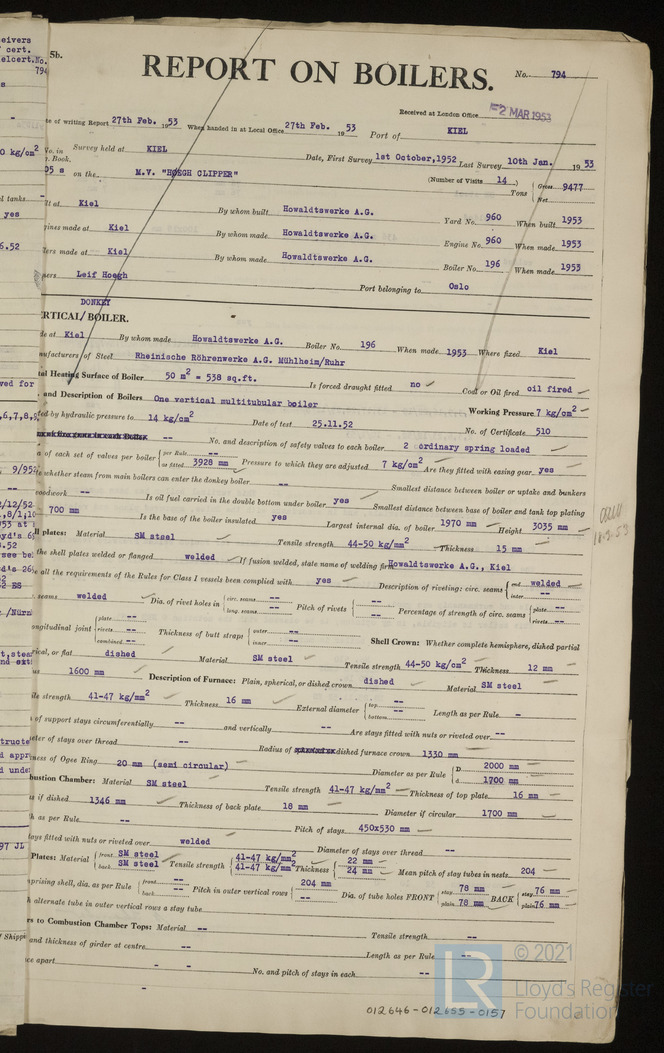 5b.
REPORT ON BOILERS.
No. 794
Received at London Office 2 MAR 1953
te of writing Report 27th Feb. 1953 When handed in at Local Office 27th Feb. 1953 Port of KIEL
No. in Survey held at KIEL Date, First Survey 1st October, 1952 Last Survey 10th Jan. 1953
. Book.
05 s on the M.V. "HØEGH CLIPPER" (Number of Visits 14 ) Tons Gross 9477
Net
lt at Kiel By whom built Howaldtswerke A.G. Yard No. 960 When built 1953
gines made at Kiel By whom made Howaldtswerke A.G. Engine No. 960 When made 1953
lers made at Kiel By whom made Howaldtswerke A.G. Boiler No. 196 When made 1953
ners Leif Hoegh Port belonging to Oslo
DONKEY
ERTICAL/BOILER.
de at Kiel By whom made Howaldtswerke A.G. Boiler No. 196 When made 1953 Where fixed Kiel
nufacturers of Steel Rheinische Röhrenwerke A.G. Mühlheim/Ruhr
tal Heating Surface of Boiler 50 m² = 538 sq.ft. Is forced draught fitted no Coal or Oil fired oil fired
. and Description of Boilers One vertical multitubular boiler Working Pressure 7 kg/cm²
ted by hydraulic pressure to 14 kg/cm² Date of test 25.11.52 No. of Certificate 510
-- No. and description of safety valves to each boiler 2 ordinary spring loaded
a of each set of valves per boiler per Rule -- as fitted 3928 mm Pressure to which they are adjusted 7 kg/cm² Are they fitted with easing gear yes
whether steam from main boilers can enter the donkey boiler -- Smallest distance between boiler or uptake and bunkers
oodwork -- Is oil fuel carried in the double bottom under boiler yes Smallest distance between base of boiler and tank top plating
700 mm Is the base of the boiler insulated yes Largest internal dia. of boiler 1970 mm Height 3035 mm
ll plates: Material SM steel Tensile strength 44-50 kg/mm² Thickness 15 mm
the shell plates welded or flanged welded If fusion welded, state name of welding firm Howaldtswerke A.G., Kiel
e all the requirements of the Rules for Class I vessels been complied with yes Description of riveting: circ. seams end welded inter --
seams welded Dia. of rivet holes in circ. seams -- long. seams -- Pitch of rivets -- -- Percentage of strength of circ. seams plate -- rivets --
ongitudinal joint plate -- rivets -- combined -- Thickness of butt straps outer -- inner -- Shell Crown: Whether complete hemisphere, dished partial
rical, or flat dished Material SM steel Tensile strength 44-50 kg/cm² Thickness 12 mm
us 1600 mm Description of Furnace: Plain, spherical, or dished crown dished Material SM steel
ile strength 41-47 kg/mm² Thickness 16 mm External diameter top -- bottom -- Length as per Rule -
of support stays circumferentially -- and vertically -- Are stays fitted with nuts or riveted over --
eter of stays over thread -- Radius of dished furnace crown 1330 mm
ness of Ogee Ring 20 mm (semi circular) Diameter as per Rule D 2000 mm d 1700 mm
bustion Chamber: Material SM steel Tensile strength 41-47 kg/mm² Thickness of top plate 16 mm
s if dished 1346 mm Thickness of back plate 18 mm Diameter if circular 1700 mm
h as per Rule -- Pitch of stays 450x530 mm
tays fitted with nuts or riveted over welded Diameter of stays over thread --
Plates: Material front SM steel back SM steel Tensile strength 41-47 kg/mm² 41-47 kg/mm² Thickness 22 mm 24 mm Mean pitch of stay tubes in nests 204
prising shell, dia. as per Rule front -- back -- Pitch in outer vertical rows 204 mm -- Dia. of tube holes FRONT stay 78 mm plain 78 mm BACK stay 76 mm plain 76 mm
h alternate tube in outer vertical rows a stay tube
rs to Combustion Chamber Tops: Material -- Tensile strength --
and thickness of girder at centre -- Length as per Rule --
ce apart -- No. and pitch of stays in each --
-
012646-012655-0157
LR
© 2021
Lloyd's Register
Foundation